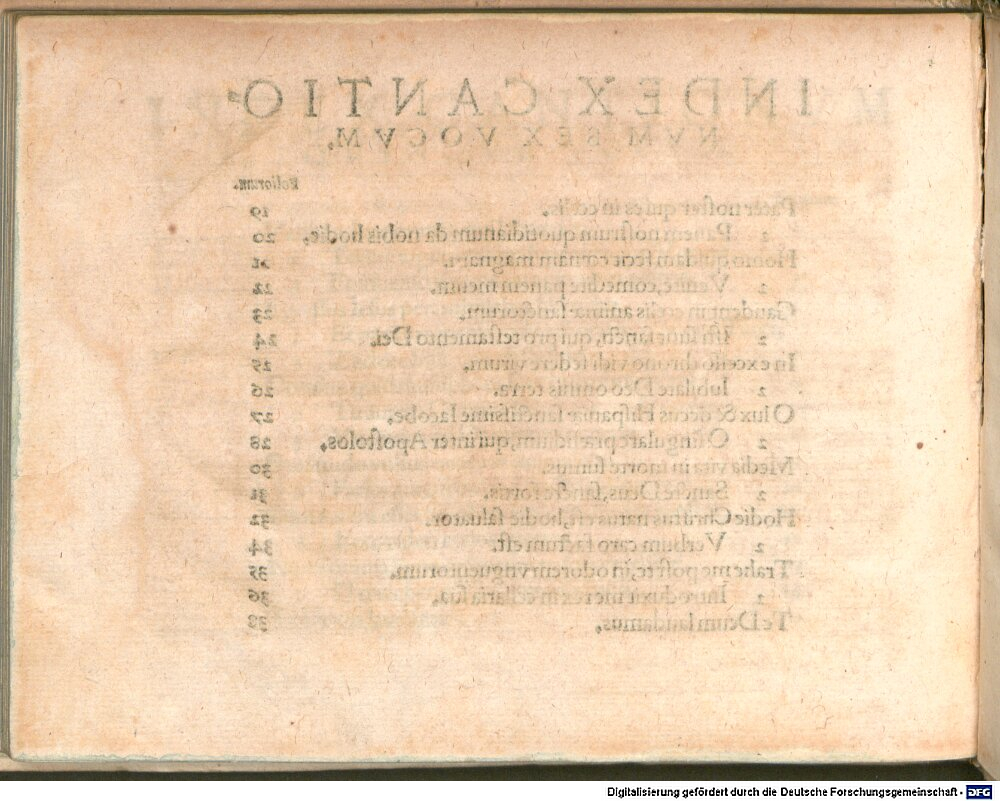 INDEX CANTIO-
NVM SEX VOCVM.
Foliorum.
Pater noster qui es in cœlis. 19
2 Panem nostrum quotidianum da nobis hodie. 20
Homo quidam fecit cœnam magnam. 21
2 Venite, comedite panem meum. 22
Gaudent in cœlis animæ sanctorum. 23
2 Isti sunt sancti, qui pro testamento Dei. 24
In excelso throno vidi sedere virum. 25
2 Iubilate Deo omnis terra. 26
O lux & decus Hispaniæ sanctissime Iacobe. 27
2 O singulare præsidium, qui inter Apostolos. 28
Media vita in morte sumus. 30
2 Sancte Deus, sancte fortis. 31
Hodie Christus natus est, hodie saluator. 32
2 Verbum caro factum est. 34
Trahe me post te, in odorem vnguentorum. 35
2 Introduxit me rex in cellaria sua. 36
Te Deum laudamus. 38
Digitalisierung gefördert durch die Deutsche Forschungsgemeinschaft - DFG